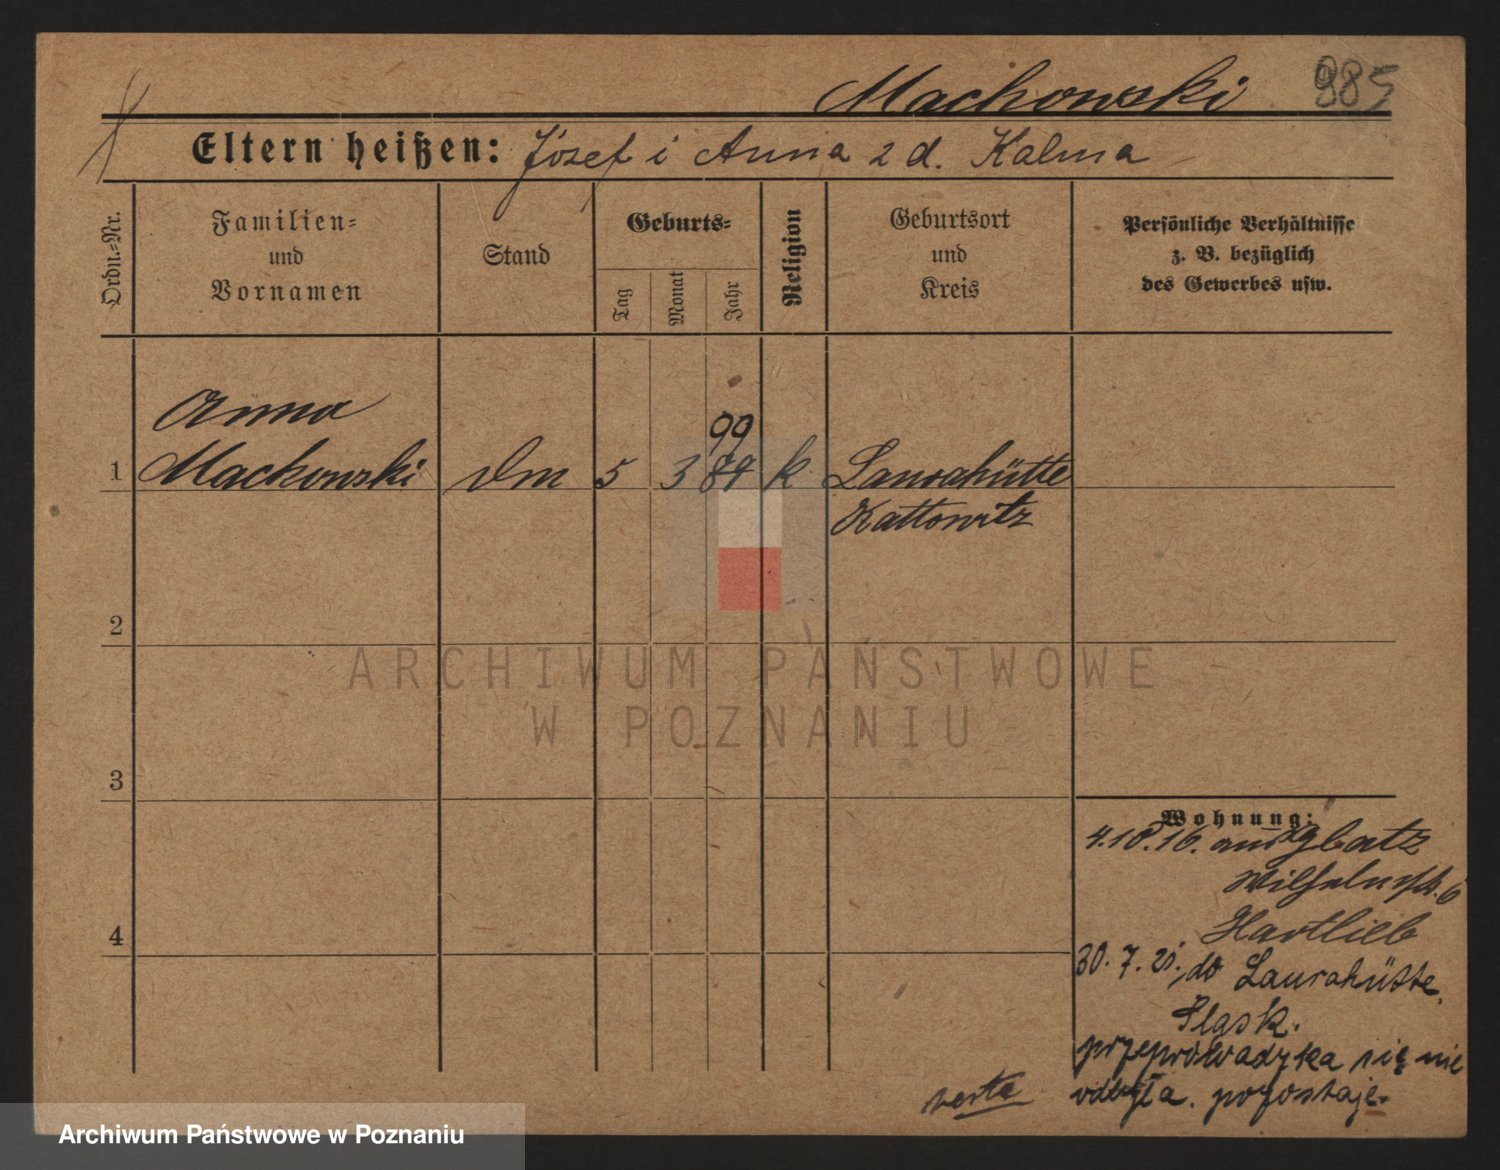 Machowski 985
Eltern heißen: Józef i Anna z d. Kalma
Ordn.=Nr.
Familien=
und
Vornamen
Stand
Geburts=
Tag
Monat
Jahr
Religion
Geburtsort
und
Kreis
Persönliche Verhältnisse
z. B. bezüglich
des Gewerbes usw.
Anna
99
1 Machowski Dm 5 3 84 k Laurahütte
Kattowitz
2
ARCHIWUM PAŃSTWOWE
W POZNANIU
3
Wohnung:
4.10.16. aus Glatz
Wilhelmstr. 6
Hartlieb
4
30.7.21. do Laurahütte.
Śląsk.
przeprowadzka się nie
odbyła. pozostaje.
verte
Archiwum Państwowe w Poznaniu